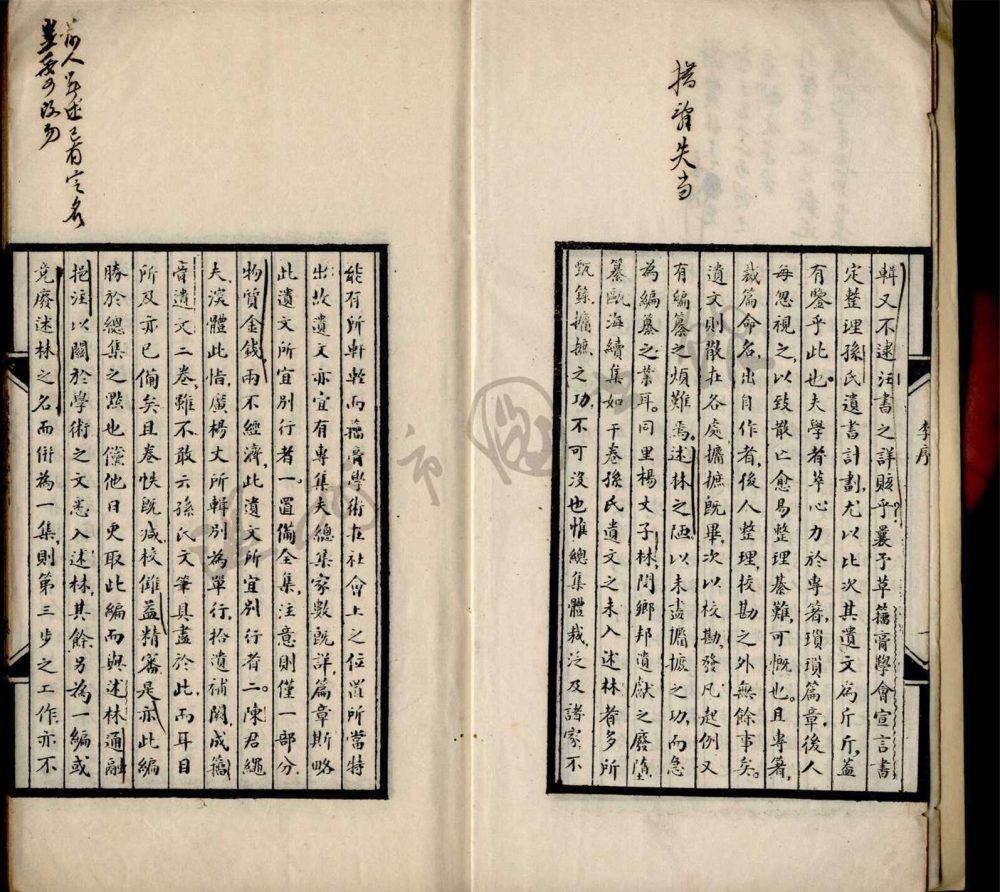 措辞失当
李序
一
輯又不逮注書之詳賅乎曩予草籀膏學會宣言書
定整理孫氏遺書計劃尤以比次其遺文為斤斤蓋
有鑒乎此也夫學者萃心力於專著瑣瑣篇章後人
每忽視之以致散亡愈易整理綦難可慨也且專著
裁篇命名出自作者後人整理校勘之外無餘事矣
遺文則散在各處摭摭既畢次以校勘發凡起例又
有編纂之煩難焉述林之陋以未盡摭摭之功而急
為編纂之業耳同里楊丈子林閔鄉邦遺獻之廢墮
纂甌海續集如干卷孫氏遺文之未入述林者多所
甄錄摭摭之功不可沒也惟總集體裁泛及諸家不
前人著述已有定名
豈可改易
能有所軒輊而籀膏學術在社會上之位置所當特
出故遺文亦宜有專集夫總集家數既詳篇章斯略
此遺文所宜別行者一置備全集注意則僅一部分
物質金錢兩不經濟此遺文所宜別行者二陳君繩
夫深體此恉廣楊丈所輯別為單行拾遺補闕成籀
膏遺文二卷雖不敢云孫氏文筆具盡於此而耳目
所及亦已備矣且卷帙既減校讎益精審是亦此編
勝於總集之點也儻他日更取此編而與述林通融
挹注以關於學術之文悉入述林其餘另為一編或
竟廢述林之名而併為一集則第三步之工作亦不